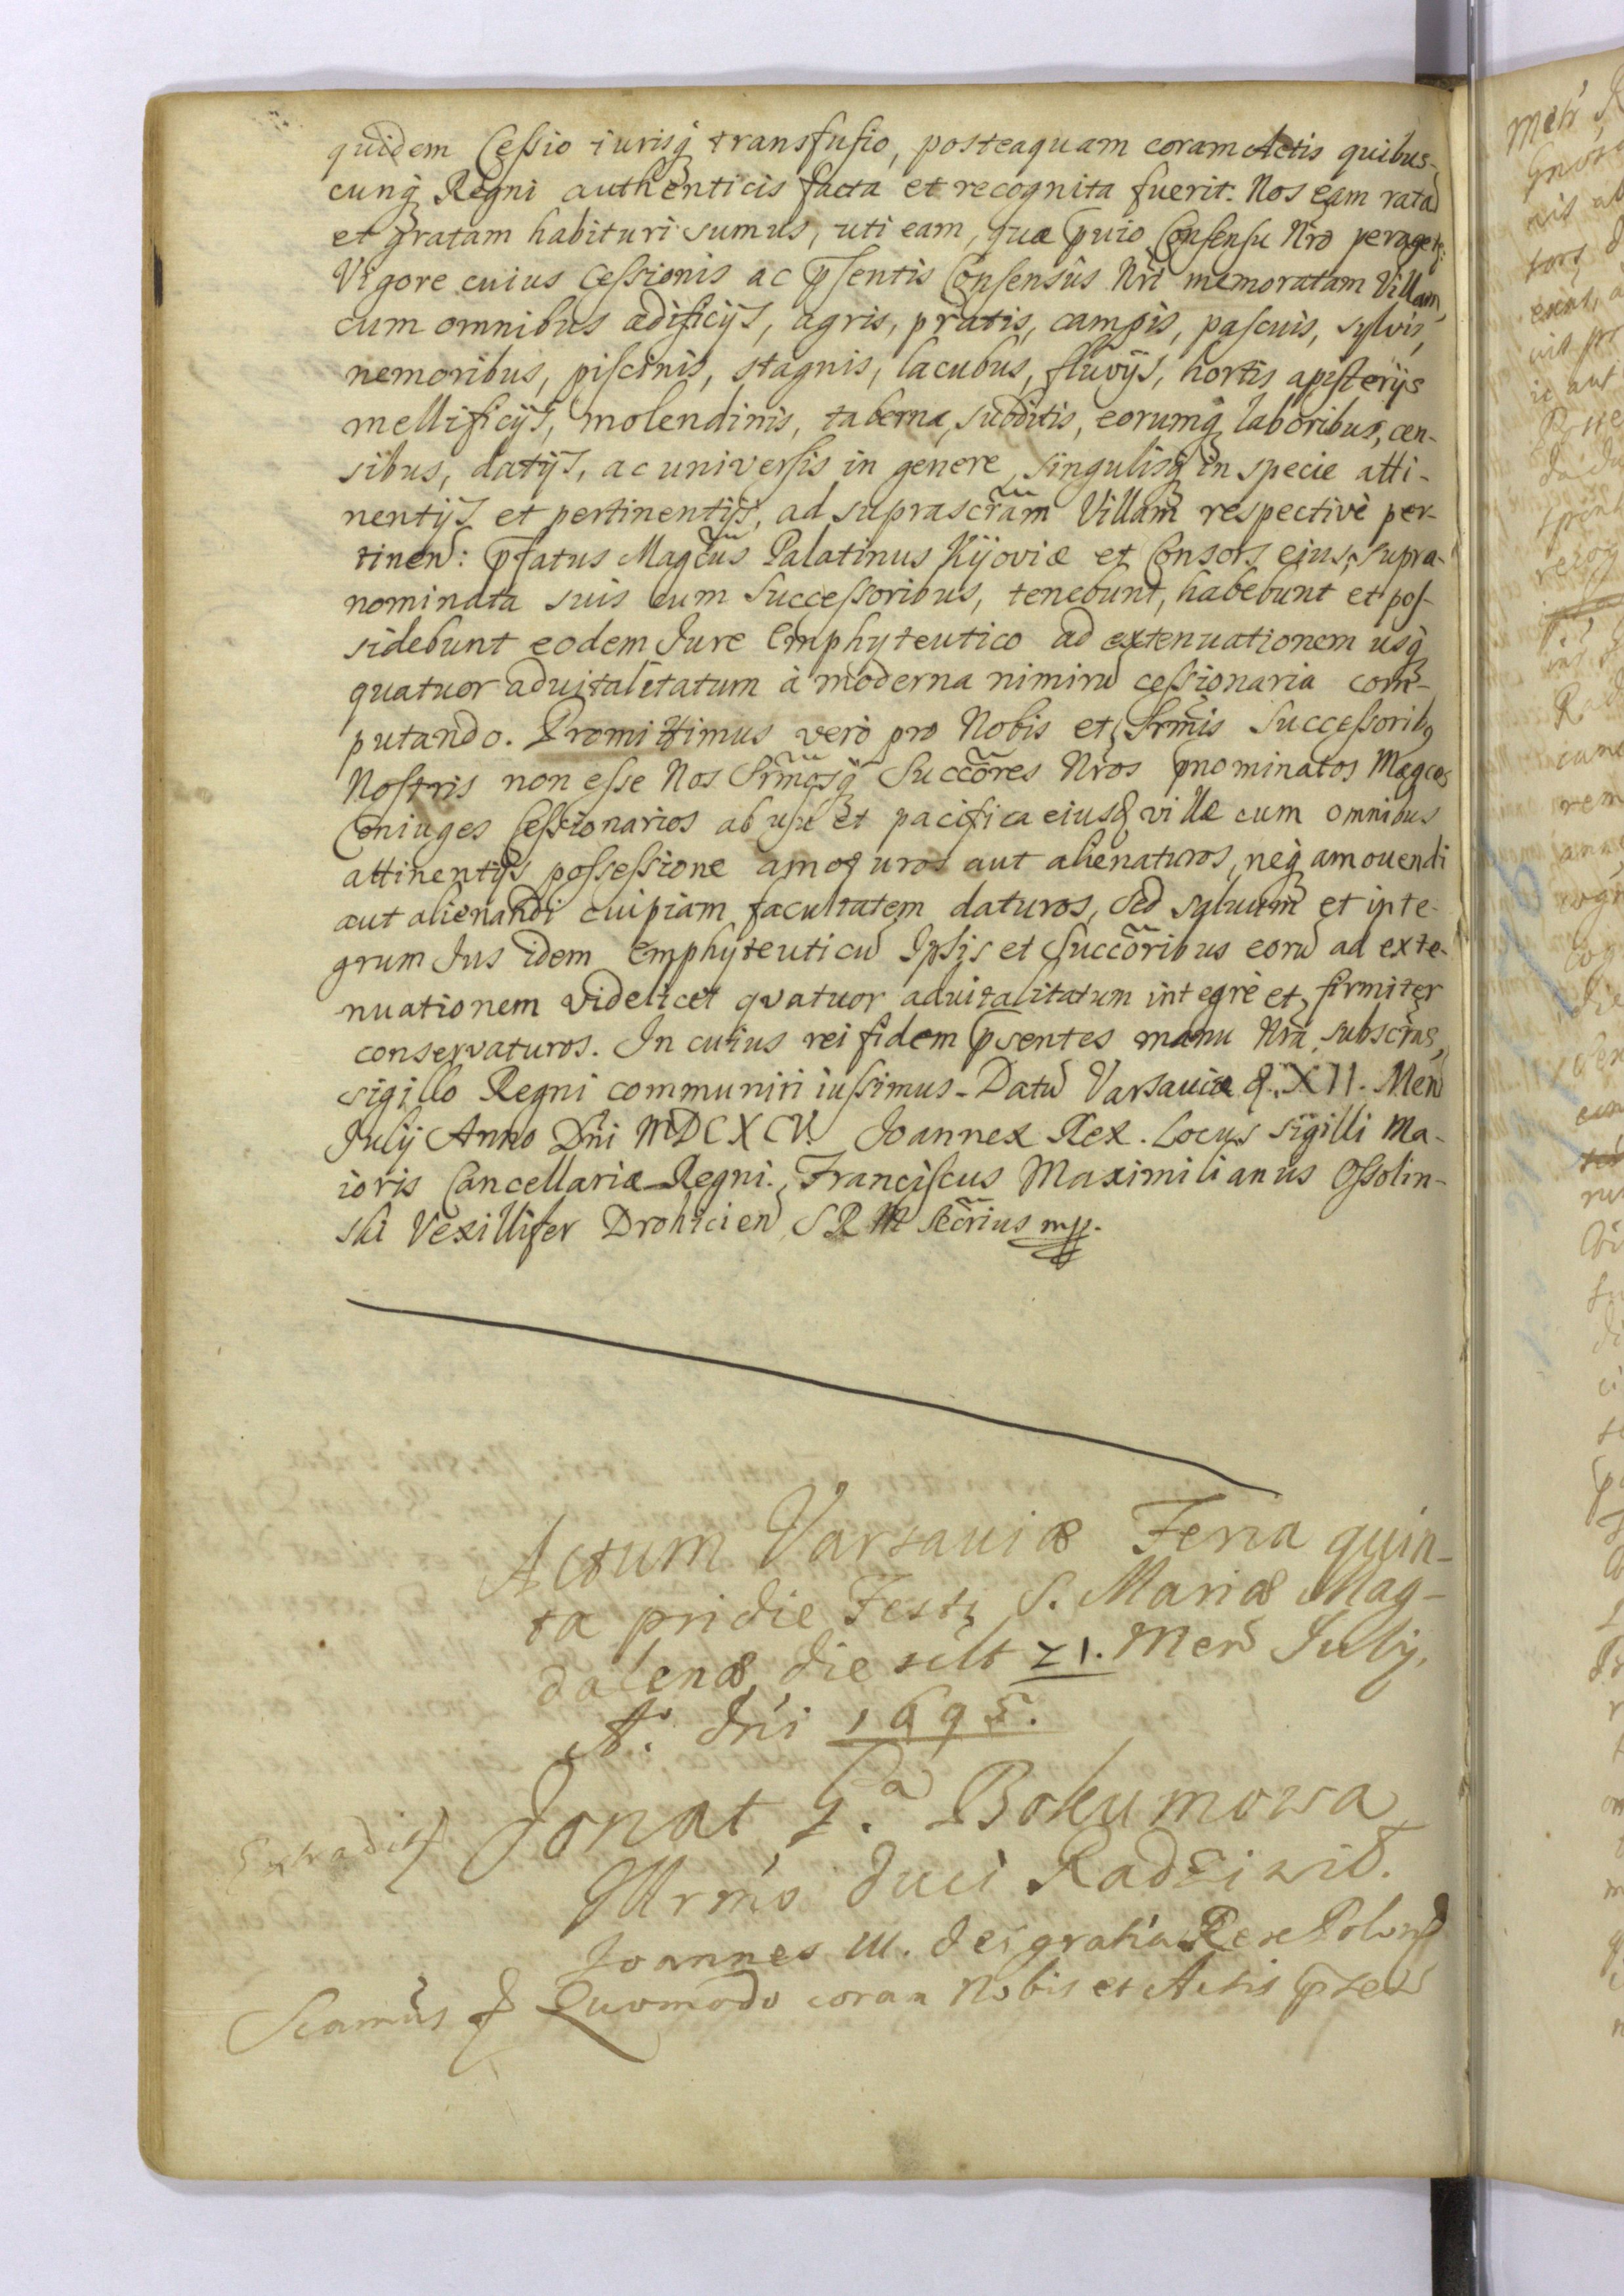 quidem Cessio iurisq transfusio, posteaquam coram Actis quibus-
cunq Regni authenticis facta et recognita fuerit. Nos eam ratã
et gratam habituri sumus, uti eam, quæ pꝛuio Consensu Nro
Vigore cuius Cessionis ac p̃sentis Consensûs Nri memoratam Villam,
cum omnibus ædificijs, agris, pratis, campis, pascuis, sylvis,
nemoribus, piscinis, stagnis, lacubus, fluvijs, hortis apisterijs
mellificijs, molendinis, taberna, subditis, eorumq laboribus, cen-
sibus, datijs, ac universis in genere, singulisq in specie atti-
nentijs et pertinentijs, ad suprascr̃am Villam respectivè per-
tinen: p̃fatus Magcus Palatinus Kijoviæ et Consors eius, supra-
nominata suis cum Successoribus, tenebunt, habebunt et pos-
sidebunt eodem Jure Emphyteutico ad extenuationem usq
quatuor advitalitatum à moderna nimirũ cessionaria com-
putando. Promittimus verò pro Nobis et Srmis Successorib9
Nostris non esse Nos Srmosq Succores Nros p̃nominatos Magcos
Coniuges Cessionarios ab usu et pacifica eiusd villæ cum omnibus
attinentijs possessione amoturos aut alienaturos, neq amouendi
aut alienandi cuipiam facultatem daturos, sed saluum et inte-
grum Jus idem Emphyteuticũ Ipsis et Succoribus eorũ ad exte-
nuationem videlicet qvatuor advitalitatum integrè et firmiter
conservaturos. In cuius rei fidem p̃sentes manu Nra subscras,
sigillo Regni communiri iussimus. Datũ Varsaviæ d. XII. Men
Julij Anno Dni MDCXCV. Joannes Rex. Locus sigilli Ma-
ioris Cancellariæ Regni. Franciscus Maximilianus Ossolin-
ski Vexillifer Drohicien S R M Secrius mp.
Actum Varsauiæ Feria quin-
ta pridie Festi S. Mariæ Mag-
dalenæ, die scilt 21. Men July,
Ao. dni 1695.
Extradit
Donat G.a Bokumowa
Illrmo Duci Radziwił.
Joannes III. dei gratia Rex Polon
Quomodo coram Nobis et Actis p̃sen